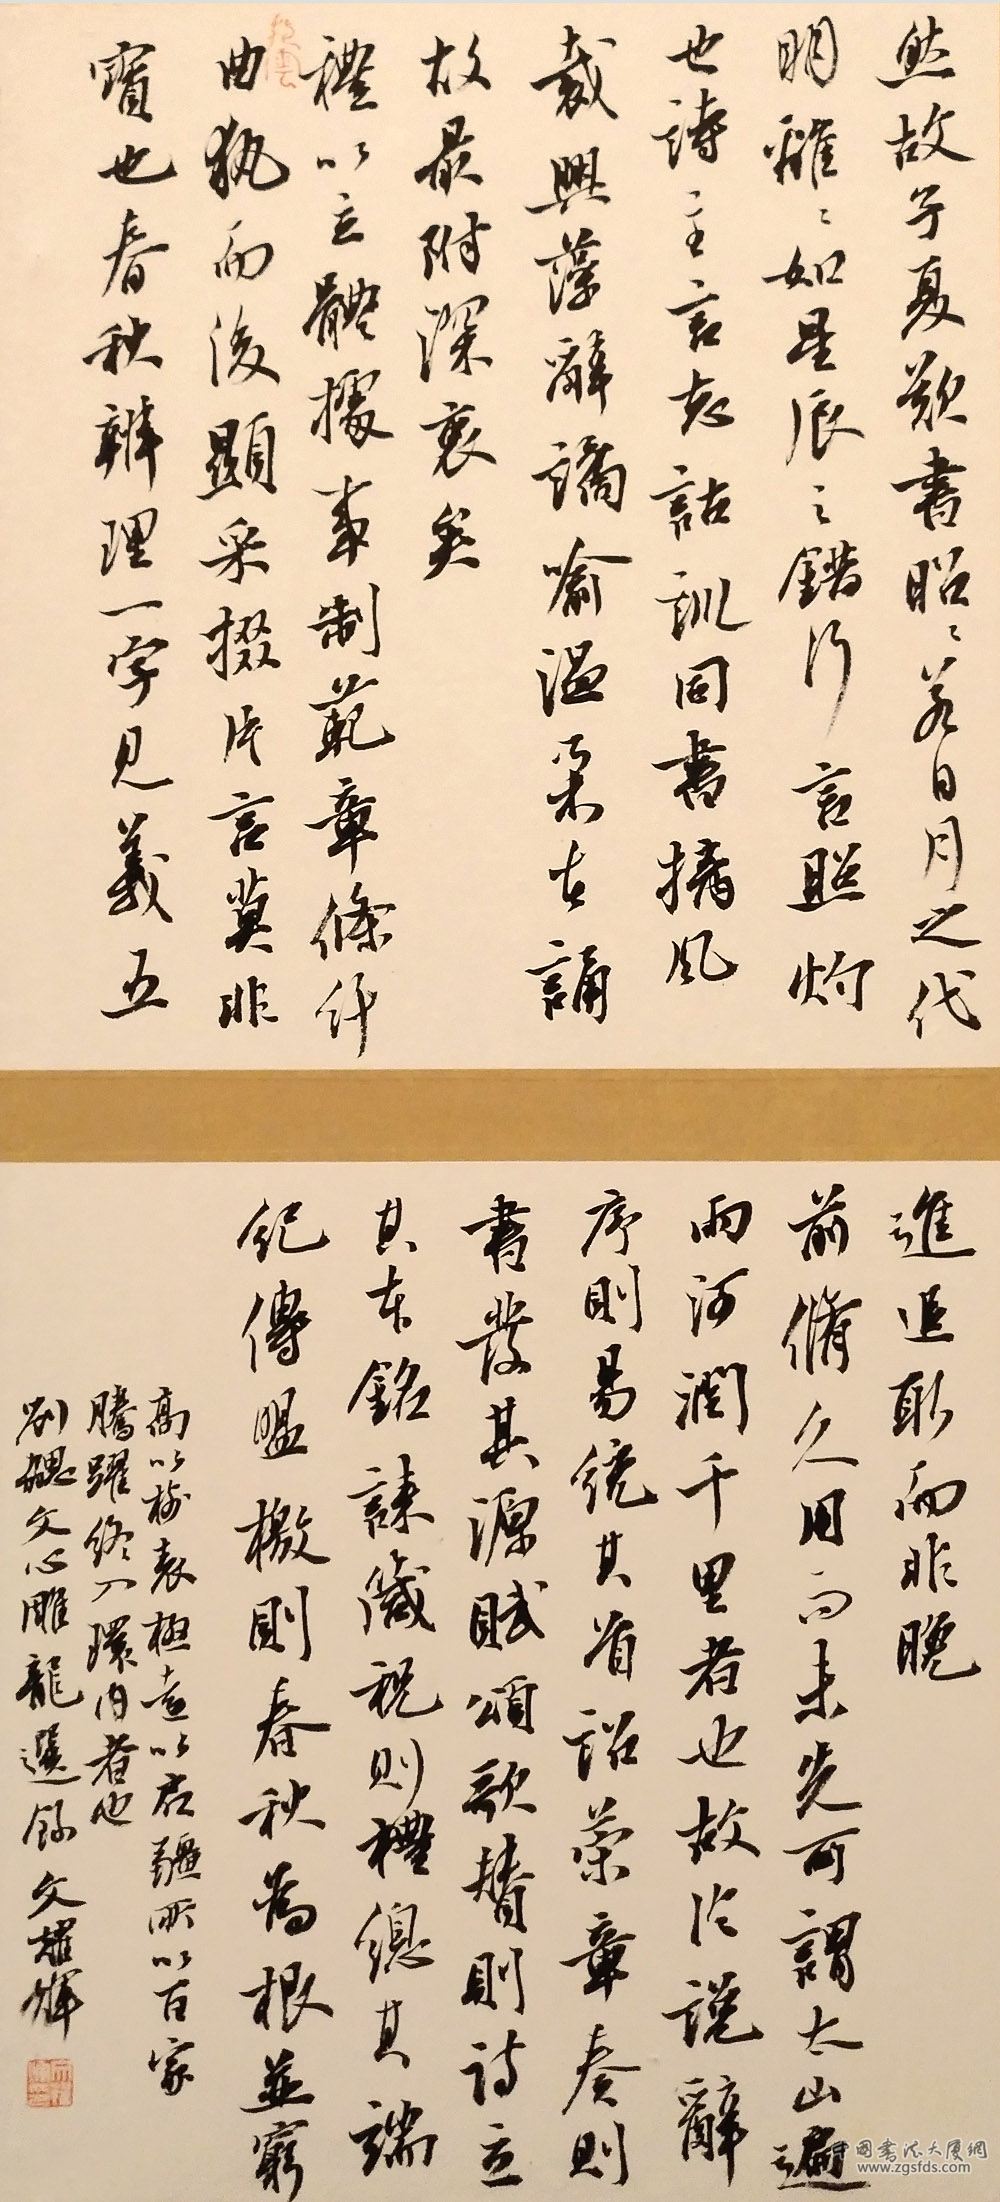 然故子夏歎書昭〻若日月之代
明離〻如星辰之錯行言照灼
也詩主言志詁訓同書摛風
裁興藻辭譎喻溫柔在誦
故最附深衷矣
禮以立體據事制範章條纖
曲執而後顯采掇片言莫非
寶也春秋辨理一字見義五
進追取而非晚
前脩久用而未先可謂太山遍
雨河潤千里者也故論說辭
序則易統其首詔策章奏則
書發其源賦頌歌贊則詩立
其本銘誄箴祝則禮總其端
紀傳盟檄則春秋為根並窮
高以樹表極遠以啟疆所以百家
騰躍終入環內者也
劉勰文心雕龍選錄 文耀輝
中國書法大廈網
www.zgsfds.com